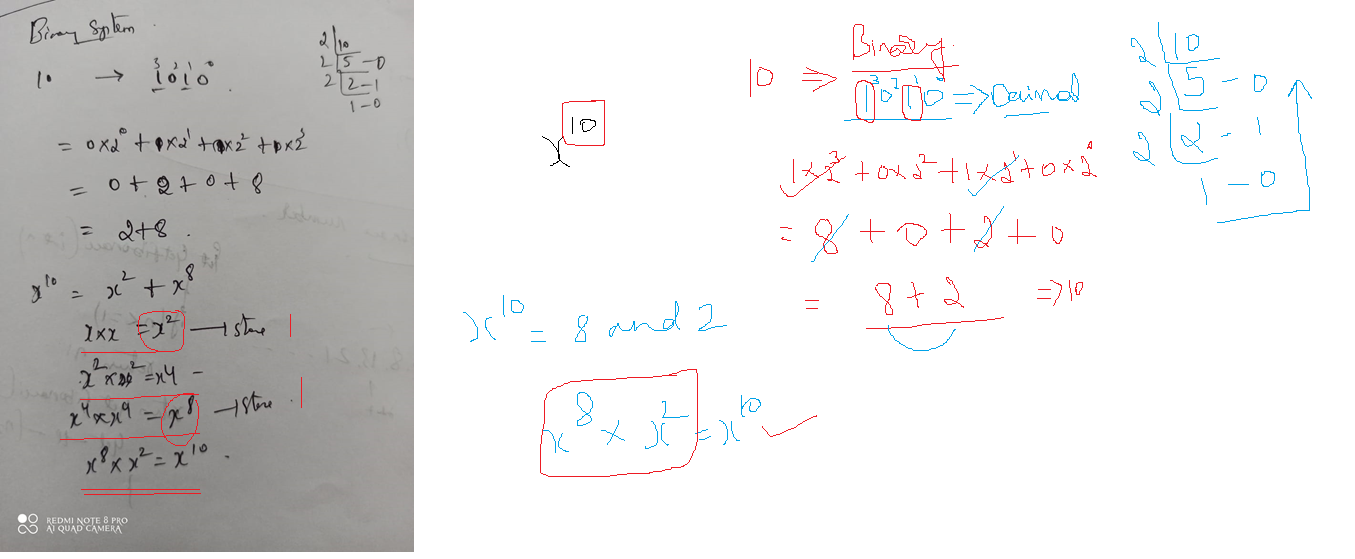 Binary System
2 10
2 5 - 0
2 2 - 1
1 - 0
10 → 1³0²1¹0⁰
= 0x2⁰ + 1x2¹ + 0x2² + 1x2³
= 0 + 2 + 0 + 8
= 2+8.
x¹⁰ = x² + x⁸
x×x = x² → store 1
x² × x² = x4 -
x⁴×x⁴ = x⁸ → store 1
x⁸ × x² = x¹⁰.
REDMI NOTE 8 PRO
AI QUAD CAMERA
x¹⁰
Binary.
10 => 1³0²1¹0⁰ => Decimal
1×2³ + 0×2² + 1×2¹ + 0×2⁰
= 8 + 0 + 2 + 0
= 8 + 2 => 10
2 10
2 5 - 0
2 2 - 1
1 - 0
x¹⁰ = 8 and 2
x⁸ × x² = x¹⁰